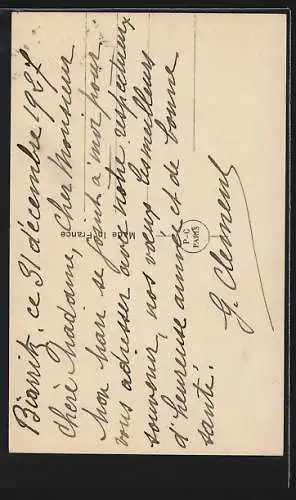 Biarritz, ce 31 décembre 1927
Chère Madame, Cher Monsieur
Mon mari se joint à moi pour
vous adresser avec notre respectueux
souvenir, nos vœux les meilleurs
d'heureuse année et de bonne
santé.
G. Clement
Made in France
P-C
PARIS